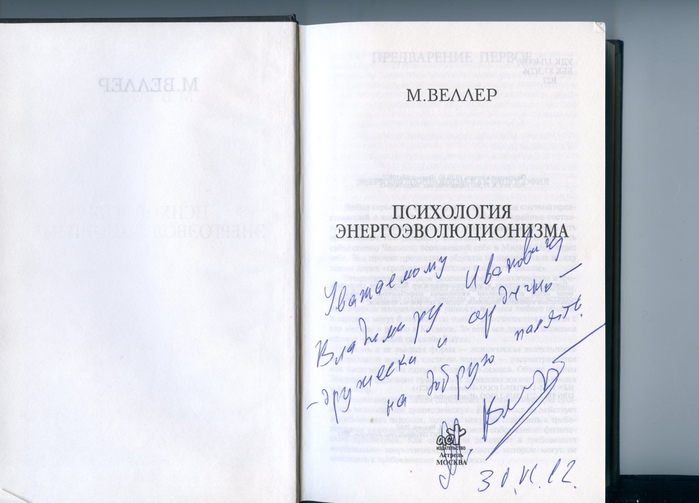 М. ВЕЛЛЕР
ПСИХОЛОГИЯ
ЭНЕРГОЭВОЛЮЦИОНИЗМА
Уважаемому
Владимиру Ивановичу
дружески и сердечно –
– на добрую память.
аст
издательство
Астрель
МОСКВА